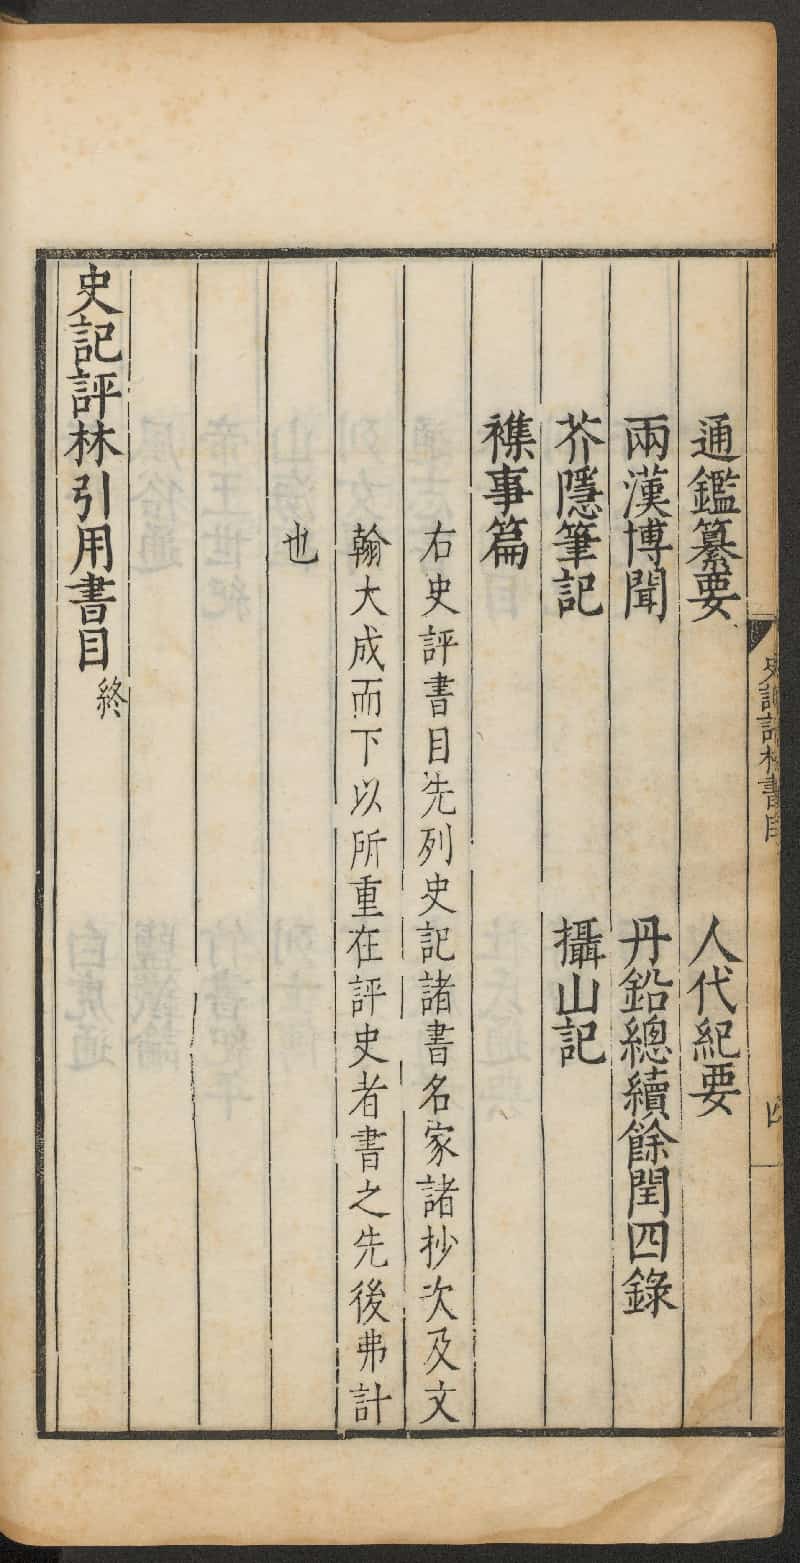 史記評林書目
四
通鑑纂要　人代紀要
兩漢博聞　丹鉛總續餘閏四錄
芥隱筆記　攝山記
襍事篇
右史評書目先列史記諸書名家諸抄次及文
翰大成而下以所重在評史者書之先後弗計
也
史記評林引用書目終